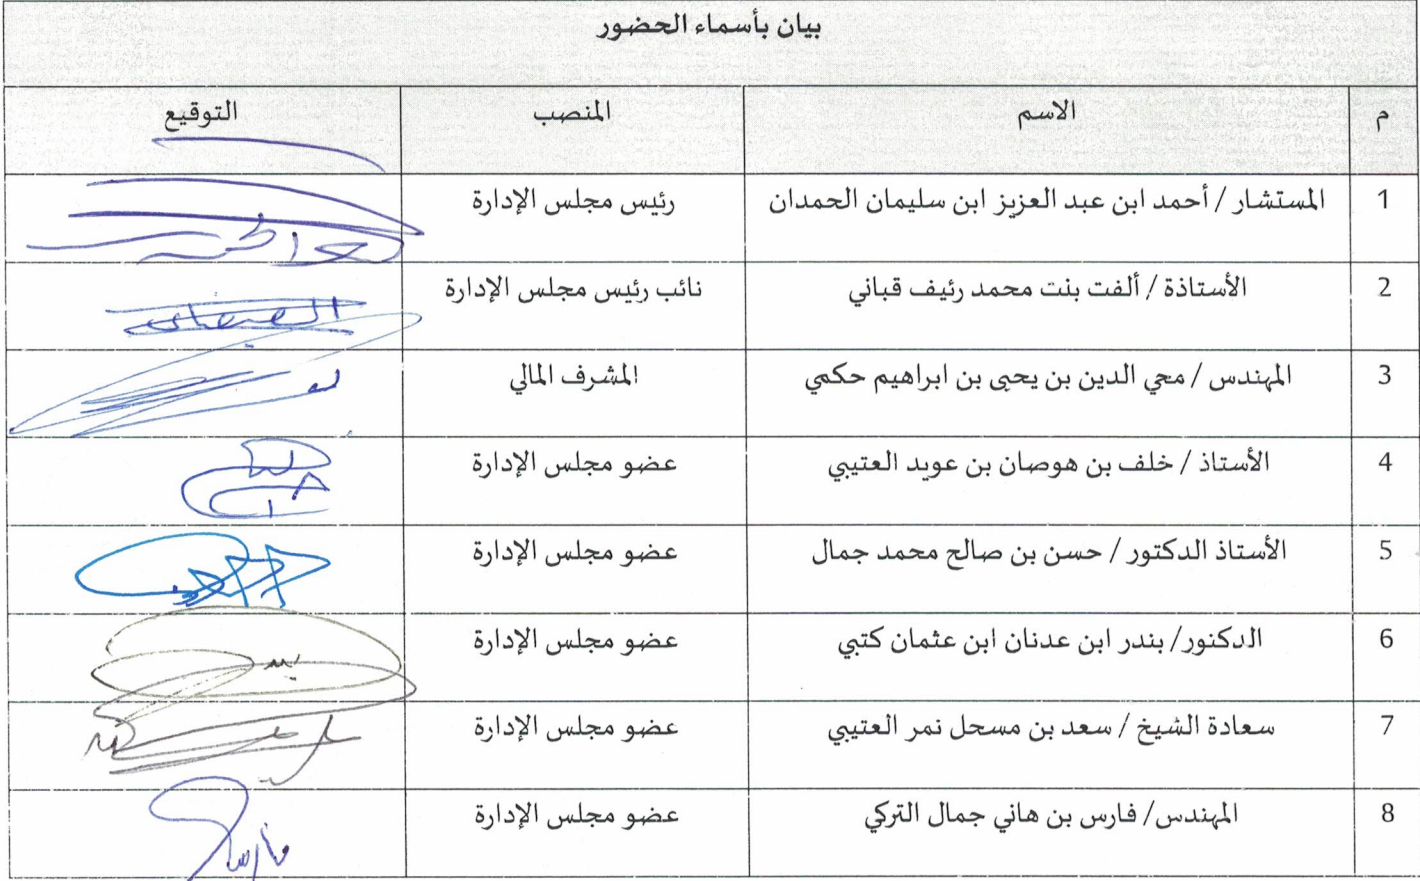 بيان بأسماء الحضور
م الاسم المنصب التوقيع
1 المستشار / أحمد ابن عبد العزيز ابن سليمان الحمدان رئيس مجلس الإدارة
2 الأستاذة / ألفت بنت محمد رئيف قباني نائب رئيس مجلس الإدارة
3 المهندس / محي الدين بن يحيى بن ابراهيم حكمي المشرف المالي
4 الأستاذ / خلف بن هوصان بن عويد العتيبي عضو مجلس الإدارة
5 الأستاذ الدكتور / حسن بن صالح محمد جمال عضو مجلس الإدارة
6 الدكنور/ بندر ابن عدنان ابن عثمان كتبي عضو مجلس الإدارة
7 سعادة الشيخ / سعد بن مسحل نمر العتيبي عضو مجلس الإدارة
8 المهندس/ فارس بن هاني جمال التركي عضو مجلس الإدارة